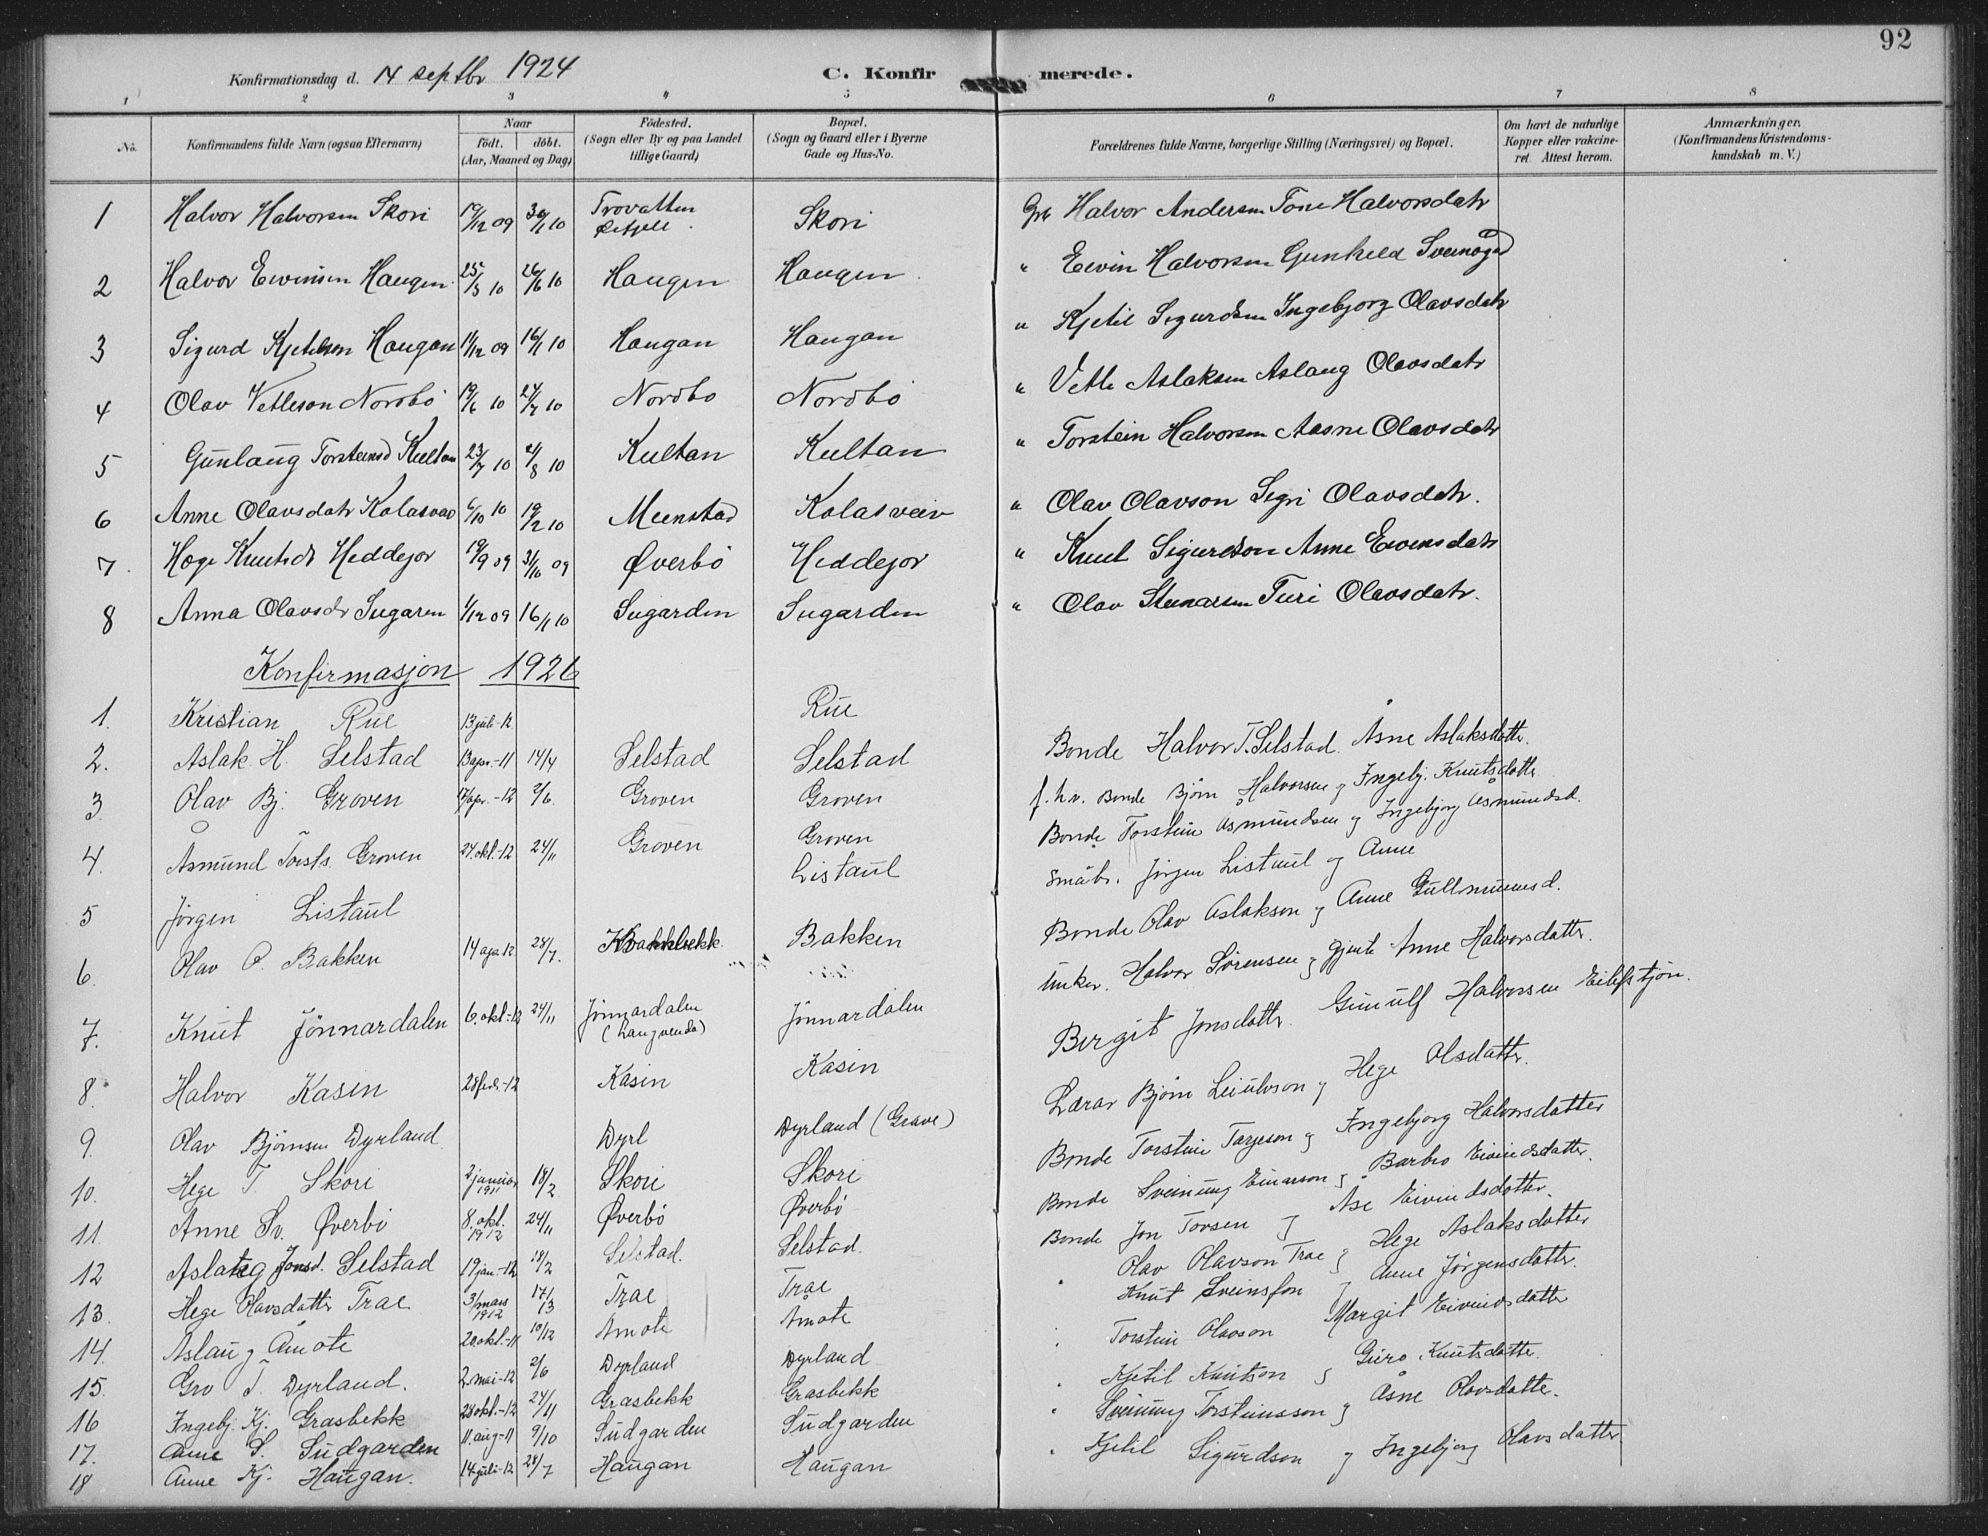 92
Konfirmationsdag d. 14 septbr 1924 C. Konfirmerede.
1 2 3 4 5 6 7 8
No. Konfirmandens fulde Navn (ogsaa Efternavn) Naar födt. döbt. (Aar, Maaned og Dag) Födested. (Sogn eller By og paa Landet tillige Gaard) Bopæl. (Sogn og Gaard eller i Byerne Gade og Hus-No. Forældrenes fulde Navne, borgerlige Stilling (Næringsvei) og Bopæl. Om havt de naturlige Kopper eller vakcineret. Attest herom. Anmærkninger. (Konfirmandens Kristendomskundskab m. V.)
1 Halvor Halvorsen Skori 19/12 09 30/1 10 Trovatten Skori Halvor Andersen Tone Halvorsdatr
2 Halvor Eivinsen Haugen 25/5 10 26/6 10 Haugen Haugen " Eivin Halvorsen Gunhild
3 Sigurd Kjetilson Haugan 11/12 09 16/1 10 Haugan Haugan " Kjetil Sigurdsen Ingebjorg Olavsdatr
4 Olav Vetleson Nordbö 19/6 10 24/7 10 Nordbo Nordbö " Vetle Aslaksen Aslaug Olavsdatr
5 Gunlaug Torsteinsd Kultan 23/7 10 21/8 10 Kultan Kultan " Torstein Halvorsen Aasne Olavsdatr
6 Anne Olavsdatr 10 10 Meenstad Kolasveiv " Olav Olavson Sigri Olavsdatr.
7. Hæge Knutsdr Heddejor 19/9 09 31/10 09 Øverbö Heddejor " Knut Sigurdson Anne Eivinsdatr
8 Anna Olavsdr Sugaren 1/12 09 16/1 10 Sugarden Sugarden " Olav Steinarsen Turi Olavsdatr.
Konfirmasjon 1926
1. Kristian Rue 13 juli-12 Rue
2. Aslak H. Selstad 13 apr.-11 14/4 Selstad Selstad Bonde Halvor T. Selstad. Åsne Aslaksdatter.
3. Olav Bj. Groven 17/apr.-12 2/6. Groven Groven f.h.v. Bonde Bjørn Halvorsen og Ingebj. Knutsdatter
4. Åsmund Torsts. Groven 24. okt.-12 24/11 Groven Groven Bonde Torstein Åsmundsen og Ingebjørg Åsmundsd.
5 Jørgen Listaul Listaul Småbr. Jørgen Listaul og Anne
6. Olav O. Bakken 14 apr 12 28/7. Bakken Bonde Olav Aslakson og Anne Gullmunnsd.
7. Knut Jönnardalen 6. okt.-12 24/11 Jönnardalen Jönnardalen Unkar. Halvor Sørensen og gjente Anne Halvorsdatter.
8. Halvor Kasin 28 -12 Kasin Kasin Birgit Jonsdatter. Gunulf Halvorsen Eilefstjøn.
9. Olav Bjørnsen Dyrland Dyrl Dyrland (Grave) Lærar Bjørn Leiulvson og Hege Olsdatter.
10. Hege T. Skori 2 januar 1911 18/2 Skori Skori Bonde Torstein Tarjeson og Ingebjørg Halvorsdatter
11. Anne Sv. Øverbö 8. okt. 1912 24/11 Øverbö Øverbö Bonde Sveinung Einarson og Barbro Eivindsdatter.
12 Aslaug Jonsd. Selstad 19 jan.-12 18/2 Selstad. Selstad. Bonde Jon Torsen og Åse Eivindsdatter.
13. Hege Olavsdatter Trae 3/mars 1912 Trae Trae Olav Olavson Trae og Hege Aslaksdatter
14. Aslaug Åmote 20 okt.-11 10/12 Åmote Åmote Knut Sveinsson og Anne Jørgensdatter.
15. Gro T. Dyrland. 2. mai-12 2/6 Dyrland Dyrland Torstein Olavson Margit Eivindsdatter
16 Ingebj. Kj. Grasbekk 28 okt.-12 24/11 Grasbekk Grasbekk Kjetil Knutson og Guro Knutsdatter.
17. Anne S. Sudgarden 11. aug-11 9/10 Sudgarden Sudgarden Sveinung Torsteinsson og Åsne Olavsdatter.
18 Anne Kj. Haugan. 14 juli-12 28/7 Haugan Haugan Kjetil Sigurdson og Ingebjørg Olavsdatter.